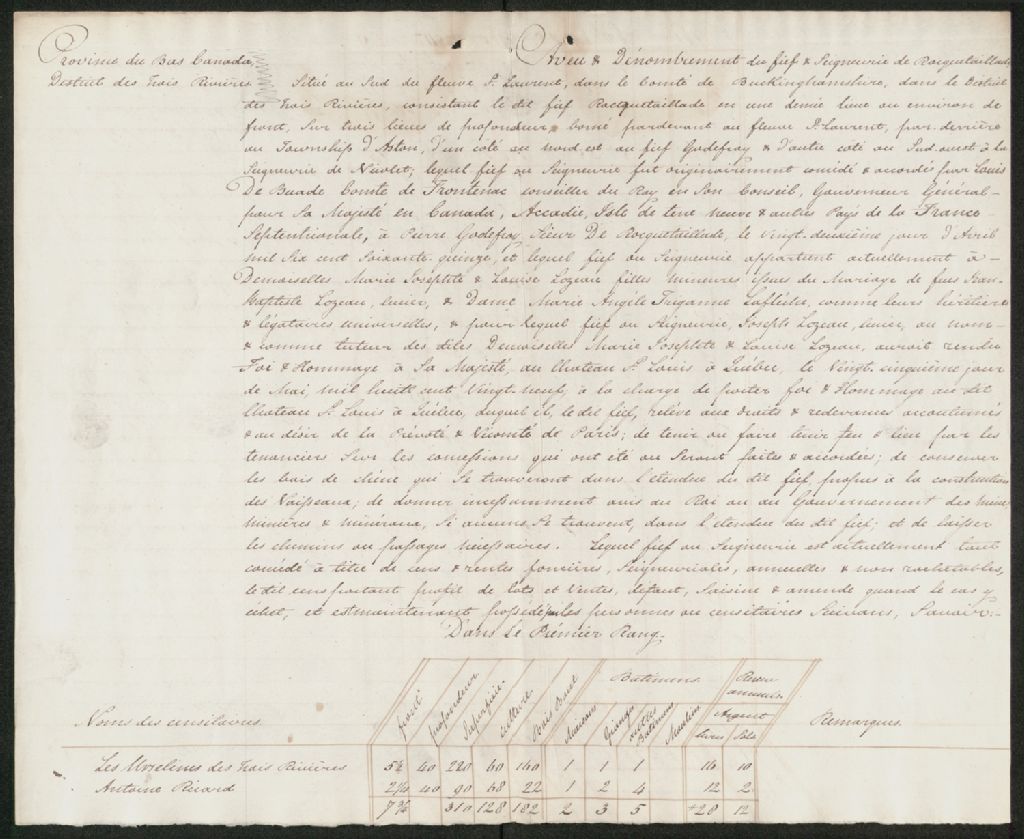 Province du Bas Canada
District des Trois Rivières
Aveu & Dénombrement du fief & Seigneurie de Rocquetaillade
Sitié au Sud du fleuve St. Laurent, dans le Comté de Buckinghamshire, dans le District
des Trois Rivières, consistant le dit fief Rocquetaillade en une demie lieue ou environ de
front, sur trois lieues de profondeur, borné pardevant au fleuve St. Laurent, par derrière
au Township d'Aston, d'un coté au nord est au fief Godefroy & d'autre coté au Sud ouest à la
Seigneurie de Nicolet; lequel fief ou Seigneurie fut originairement concédé & accordé par Louis
De Buade Comte de Frontenac conseiller du Roy en Son Conseil, Gouverneur Général
pour Sa Majesté en Canada, Accadie, Isle de terre neuve & autres Pays de la France
Septentrionale, à Pierre Godefroy, Sieur De Rocquetaillade, le vingt-deuxième jour d'Avril
mil Six cent Soixante-quinze, et lequel fief ou Seigneurie appartient actuellement à
Demoiselles Marie Josephte & Louise Lozeau filles mineures issues du Mariage de feus Jean
Baptiste Lozeau, & Dame Marie Angéle Laflèche, comme leurs héritières
& légataires universelles, & pour lequel fief ou Seigneurie, Joseph Lozeau, au nom
& comme tuteur des dites Demoiselles Marie Josephte & Louise Lozeau, auroit rendu
Foi & Hommage à Sa Majesté, au Chateau St. Louis à Québec, le Vingt-cinquième jour
de Mai, mil huit cent Vingt-neuf, à la charge de porter foi & Hommage au dit
Chateau St. Louis à Québec, duquel il, le dit fief, relève aux droits & redevances accoutumés
& au désir de la Prévoté & Vicomté de Paris; de tenir ou faire tenir feu & lieu par les
tenanciers Sur les concessions qui ont été ou Seront faites & accordées; de conserver
les bois de chêne qui Se trouveront dans l'étendue du dit fief, propres à la construction
des Vaisseaux; de donner incessamment avis au Roi ou au Gouvernement des mines
minières & minéraux, Si aucuns Se trouvent, dans l'étendue du dit fief; et de laisser
les chemins ou passages nécessaires. Lequel fief ou Seigneurie est actuellement tout
concédé à titre de cens & rentes foncières, Seigneuriales, annuelles & non rachetables,
le dit cens portant profit de lots et Ventes, défaut, Saisine & amende quand le cas y
échet, et est maintenant possédé par les personnes ou censitaires Suivans, Savoir:
Dans Le Prémier Rang
Noms des censitaires front profondeur Superficie culture Bois Bout Maisons Granges autres Batimens Moulins Batimens Rentes annuelles Argent livres Sols Remarques
Les Urselines des Trois Rivières 5½ 40 220 60 160 1 1 1 16 10
Antoine Ricard 2¼ 40 90 68 22 1 2 4 12 2
7¾ 310 128 182 2 3 5 28 12